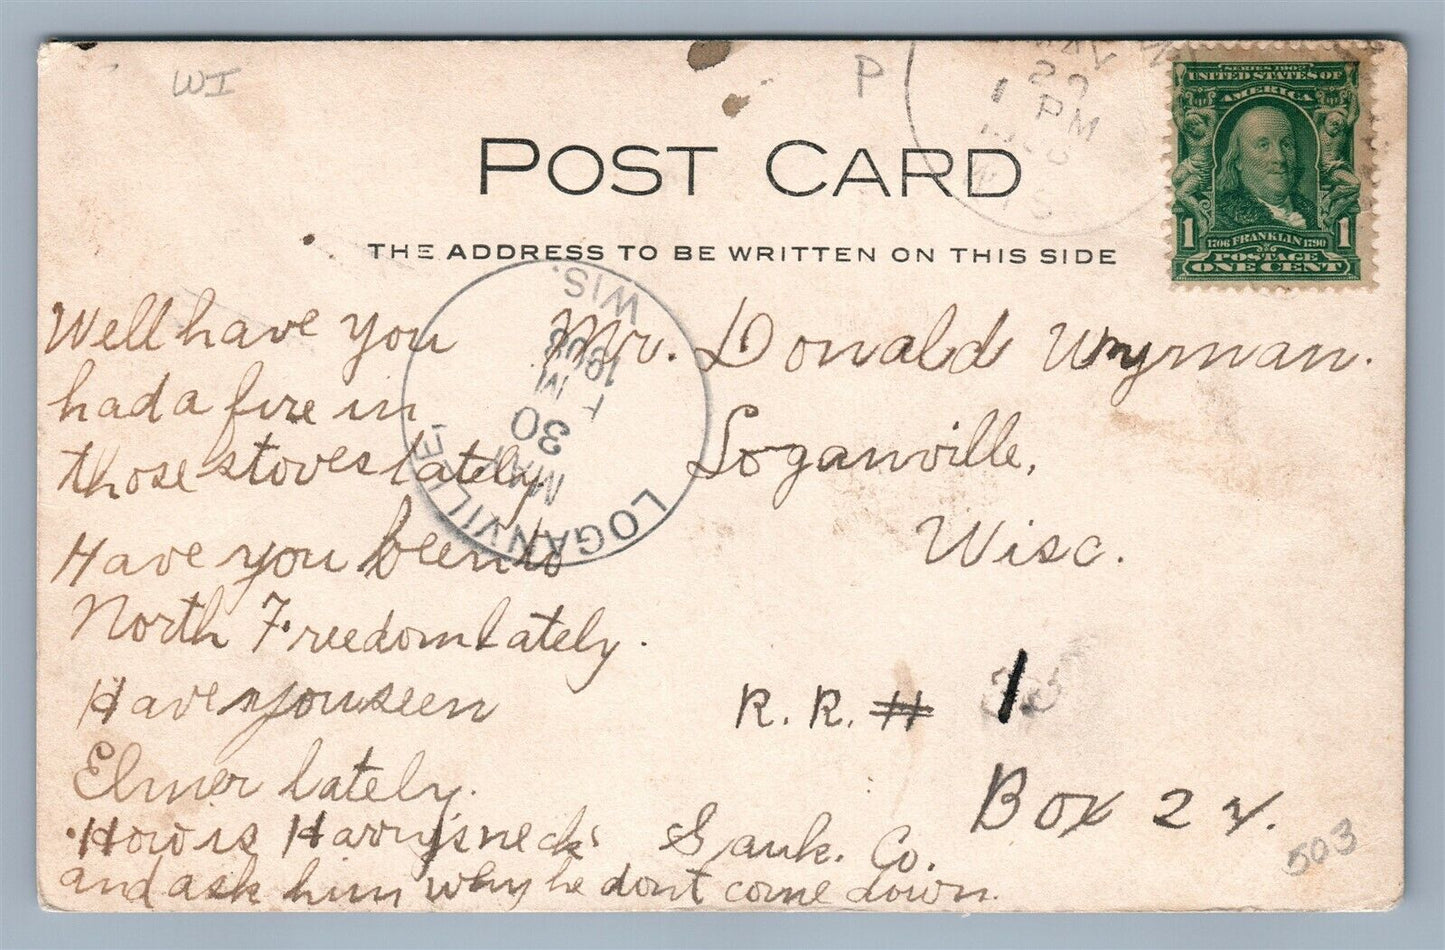 WI
P
27
1 PM
WIS
SERIES 1902
UNITED STATES OF
AMERICA
1 1706 FRANKLIN 1790 1
POSTAGE
ONE CENT
POST CARD
THE ADDRESS TO BE WRITTEN ON THIS SIDE
LOGANVILLE,
30
1908
WIS.
Well have you
had a fire in
those stoves lately
Have you been to
North Freedom lately.
Have you seen
Elmer lately.
How is Harry's neck
and ask him why he dont come down.
Mr. Donald Wyman.
Loganville,
Wisc.
R. R. # 1
Box 22.
Sauk. Co.
503